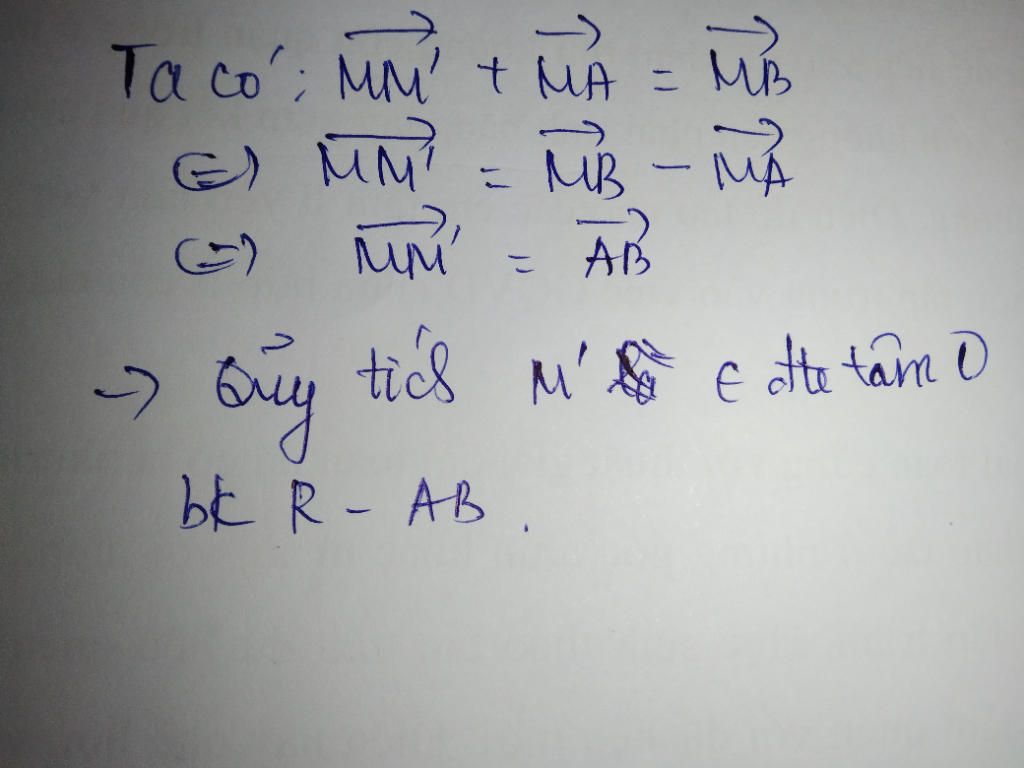 Ta có: MM' + MA = MB
(=) MM' = MB - MA
(=) MM' = AB
→ Qũy tích M' ∈ đtr tâm O
bk R - AB.